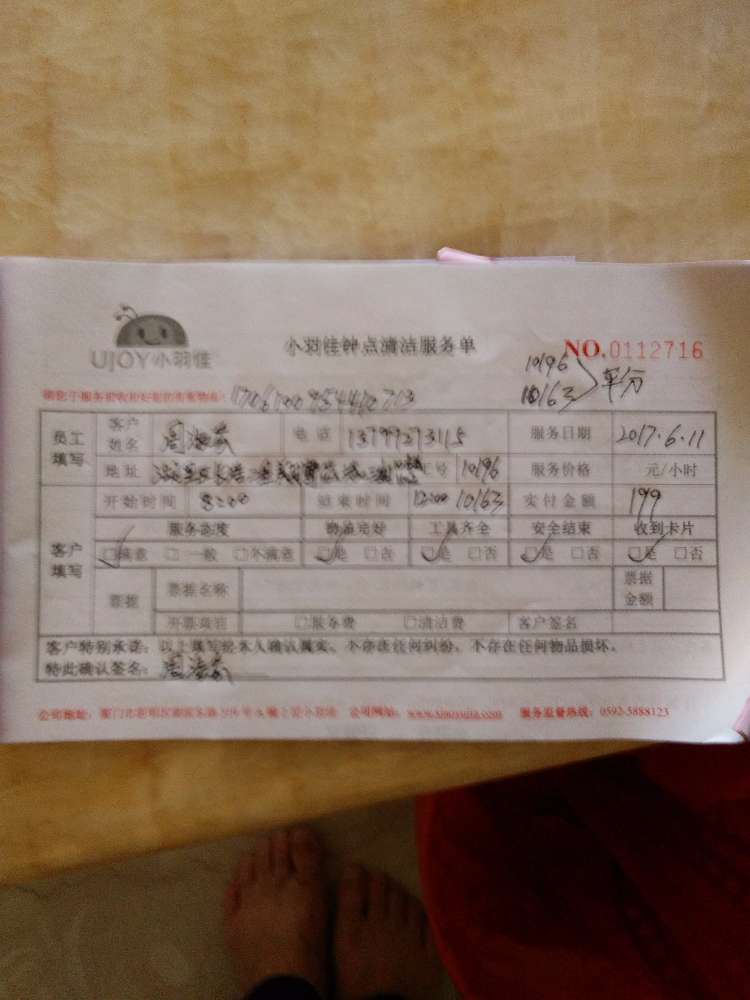 UJOY小羽佳
小羽佳钟点清洁服务单
NO.0112716
10196
10163 平分
员工填写
客户姓名 电话 13799273115 服务日期 2017.6.11
地址 工号 10196 服务价格 元/小时
客户填写
开始时间 8:00 结束时间 12:00 10163 实付金额 199
服务态度 物品完好 工具齐全 安全结束 收到卡片
☑满意 □一般 □不满意 ☑是 □否 ☑是 □否 ☑是 □否 ☑是 □否
票据 票据名称 票据金额
开票项目 □服务费 □清洁费 客户签名
客户特别承诺：以上填写经本人确认属实，不存在任何纠纷，不存在任何物品损坏。
特此确认签名：
公司地址： 公司网址： 服务监督热线：0592-5888123